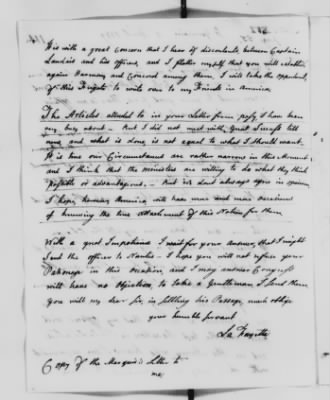 It is with a great Concern that I hear of discontents between Captain
Landais and his officers, and I flatter myself that you will establish
again Harmony and Concord among them, I will take the opportunity
of this Frigate to write over to my Friends in America
The Articles alluded to in your Letter from Passy I have been
very busy about — But I did not meet with Great Success till
now, and what is done is not equal to what I should want.
It is true our Circumstances are rather narrow in this Moment
and I think that the ministers are willing to do what they think
possible or advantageous, — But we dont always agree in opinion
I hope, however America, will have more and more occasions
of knowing the true Attachment of this Nation for them
With a great Impatience I wait for your Answer, that I might
send the officer to Nantes — I hope you will not refuse your
Patronage in this Occasion, and I may answer Congress
will have no Objection, to take a Gentleman I send them
you will my dear Sir, in settling his Passage, much oblige
your humble servant
La Fayette
Copy of the Marquis's Letter to
me